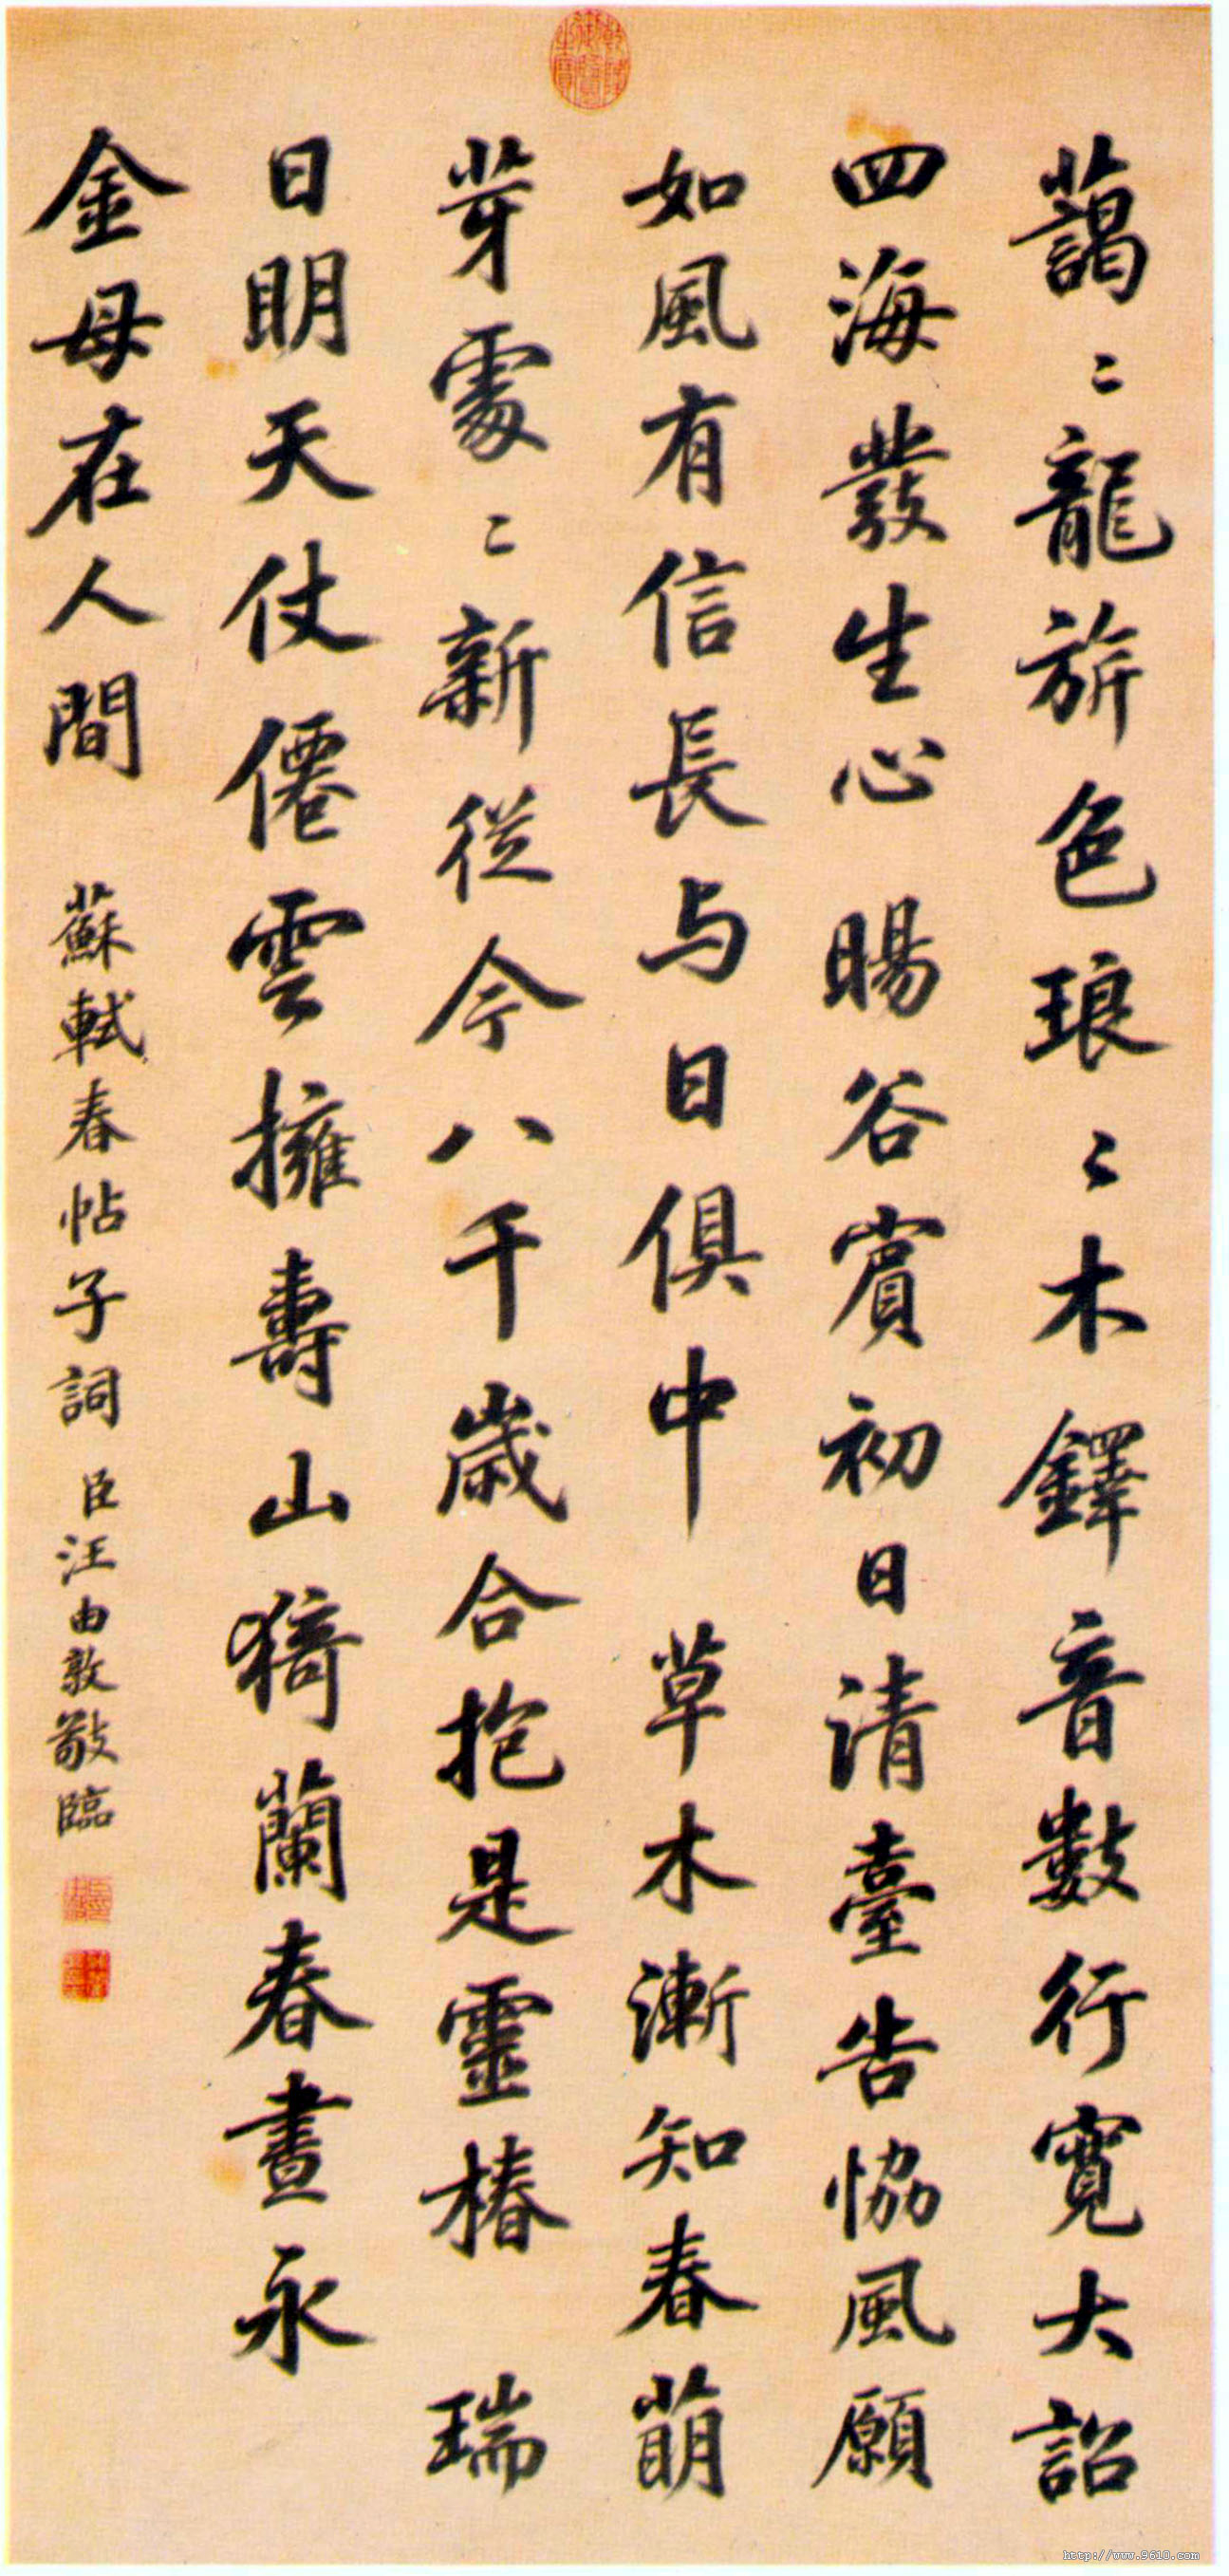 藹〻龍旂色琅〻木鐸音數行寬大詔
四海發生心 暘谷賓初日清臺告協風願
如風有信長与日俱中 草木漸知春萌
芽處〻新從今八千歲合抱是靈椿 瑞
日明天仗僊雲擁壽山猗蘭春晝永
金母在人間 蘇軾春帖子詞 臣汪由敦敬臨
乾隆御覽之寶
http://www.9610.com